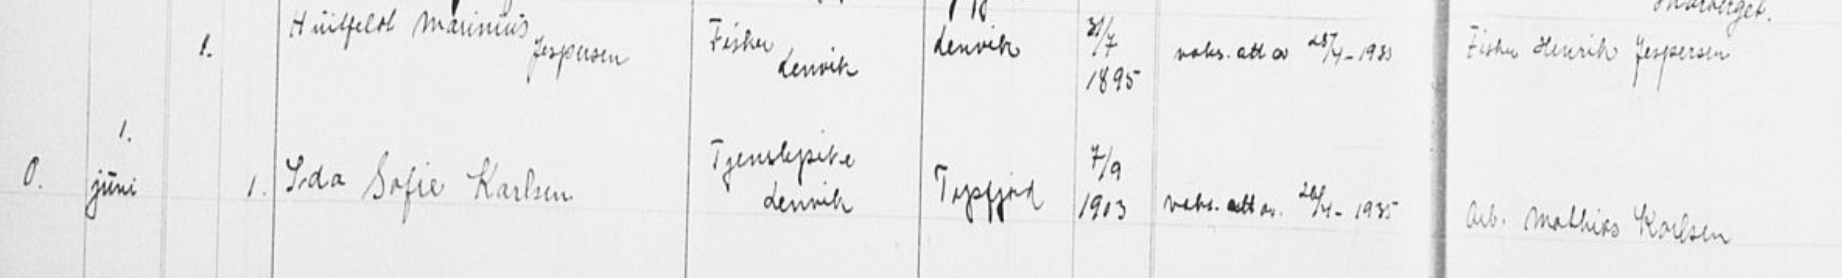 1. Huitfeldt Marinius Jespersen Fisker Lenvik Lenvik 31/7 1895 vaks. att av 28/4-1935 Fisker Henrik Jespersen
0. 1. juni 1. Ida Sofie Karlsen Tjenstepike Lenvik Topfjord 7/9 1903 vaks. att av. 26/4-1935 Arb. Mathias Karlsen